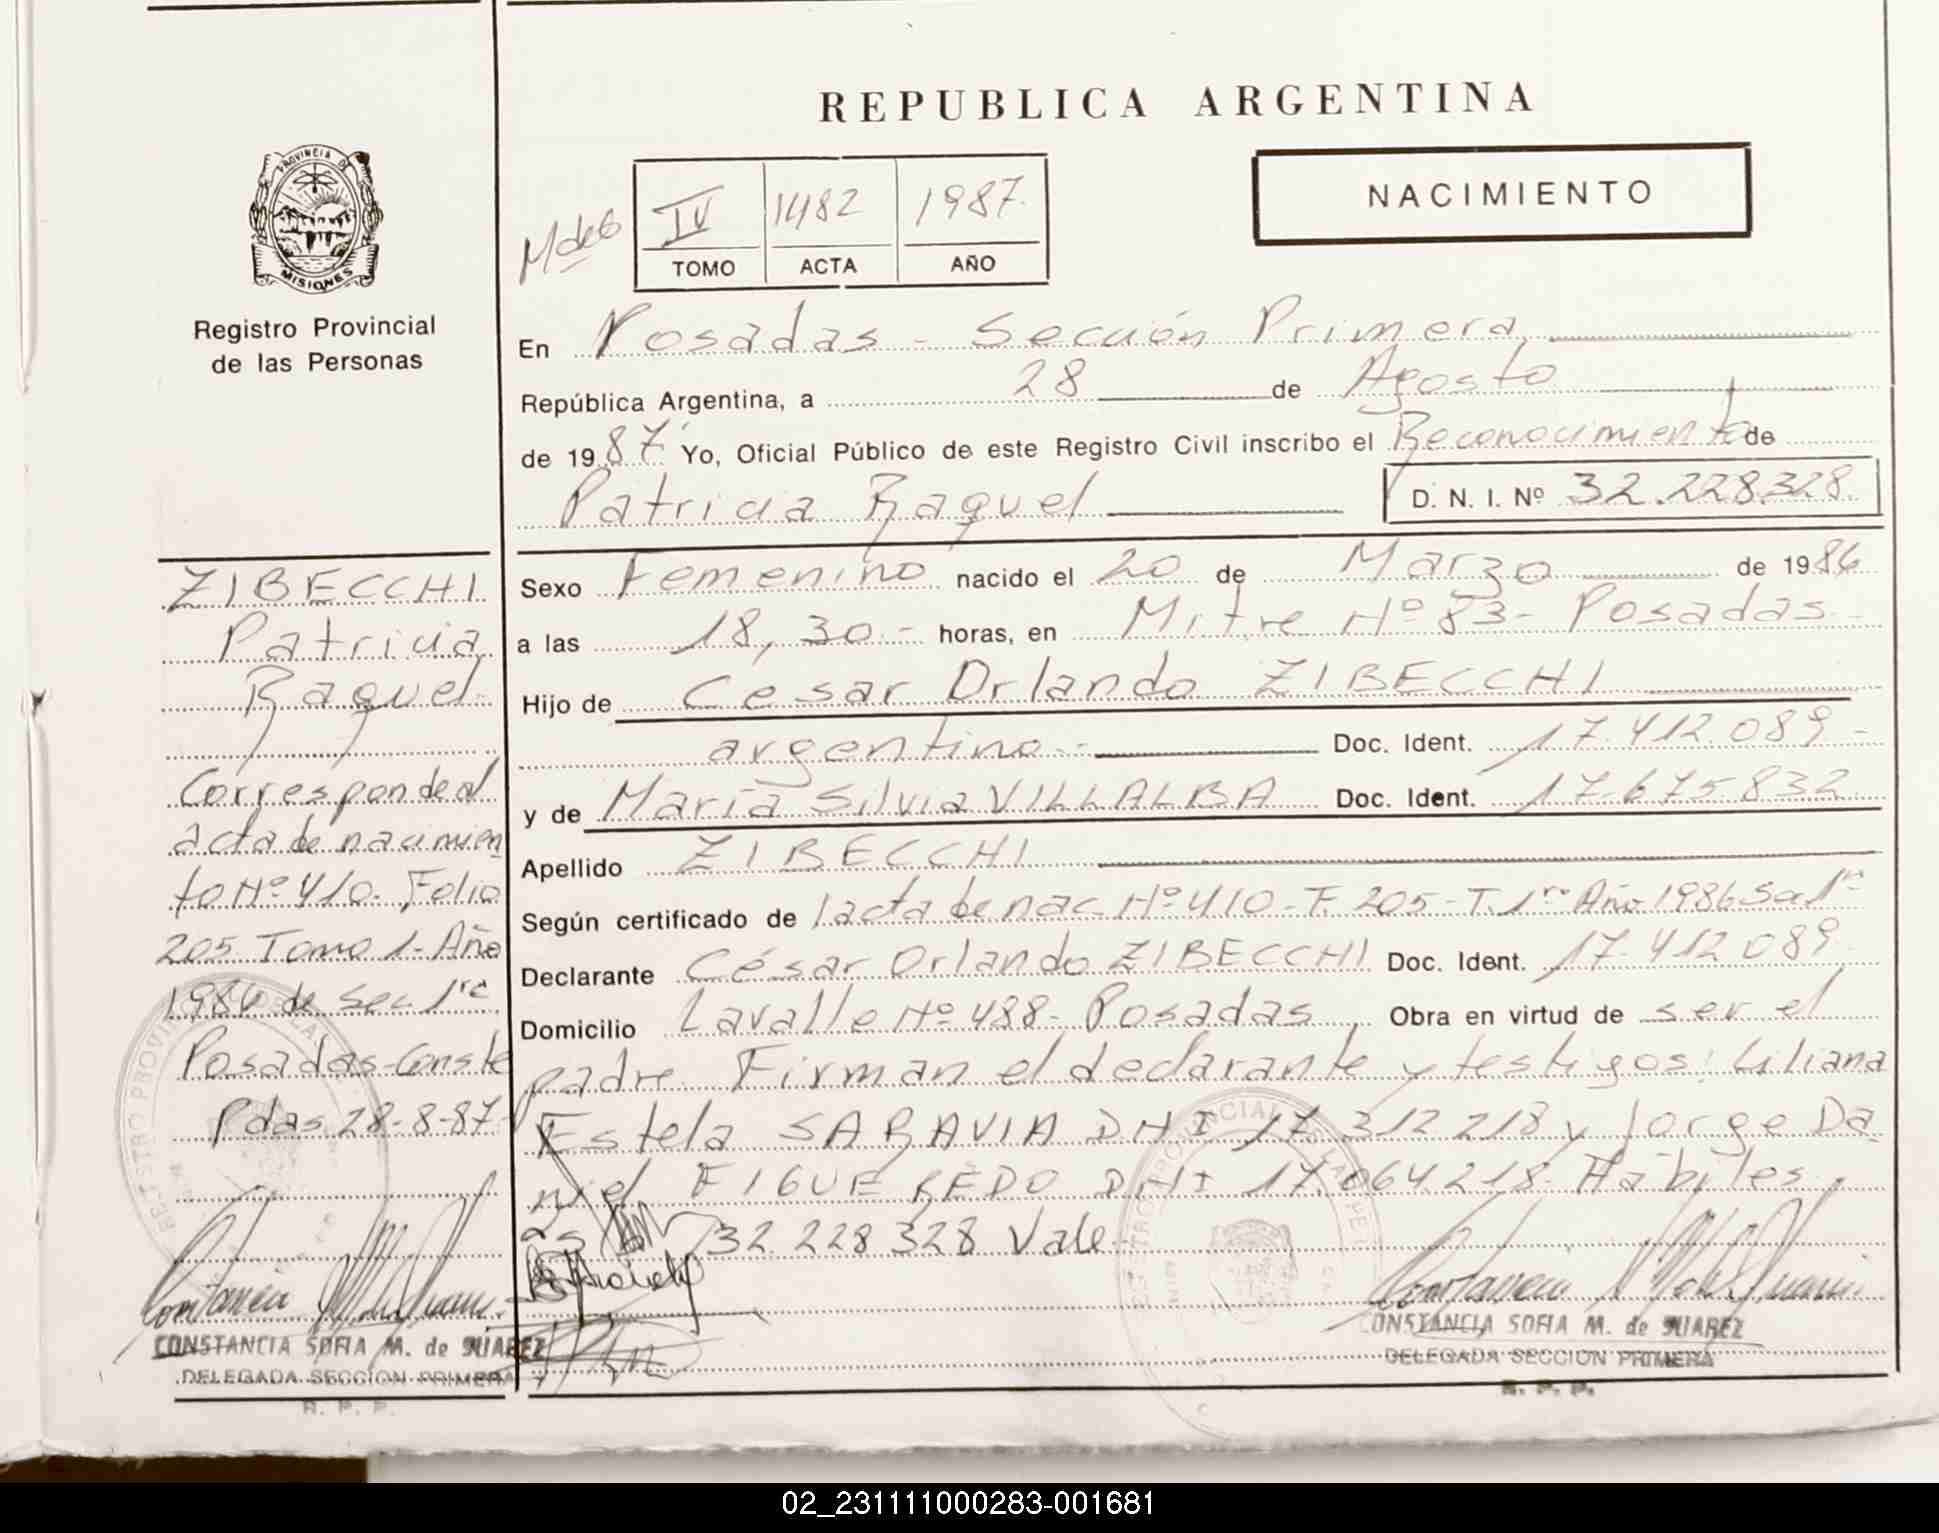 REPUBLICA ARGENTINA
NACIMIENTO
IV 1482 1987.
TOMO ACTA AÑO
PROVINCIA DE
MISIONES
Registro Provincial
de las Personas
En Posadas - Sección Primera
República Argentina, a 28 de Agosto
de 1987 Yo, Oficial Público de este Registro Civil inscribo el Reconocimiento de
Patricia Raquel D. N. I. Nº 32.228.328.
Sexo Femenino nacido el 20 de Marzo de 1986
a las 18,30.- horas, en Mitre Nº 83- Posadas.-
Hijo de Cesar Orlando ZIBECCHI
argentino.- Doc. Ident. 17.412.089-
y de María Silvia VILLALBA Doc. Ident. 17.675.832
Apellido ZIBECCHI
Según certificado de acta de nac. Nº 410-F. 205-T. 1ro Año 1986
Declarante César Orlando ZIBECCHI Doc. Ident. 17.412.089
Domicilio Lavalle Nº 488- Posadas Obra en virtud de ser el
padre. Firman el declarante y testigos: Liliana
Estela SARAVIA DNI 17.312.218 y Jorge Da
niel FIGUEREDO DNI 17.064.218- Hábiles
32.228.328 Vale
ZIBECCHI
Patricia
Raquel-
Corresponde al
acta de nacimien
to Nº 410. Folio
205 Tomo 1- Año
1986 de Sec 1ra
Posadas-Conste
Pdas 28-8-87-
CONSTANCIA SOFIA M. de SUAREZ
DELEGADA SECCION PRIMERA
R. P. P.
CONSTANCIA SOFIA M. de SUAREZ
DELEGADA SECCION PRIMERA
R. P. P.
02_231111000283-001681